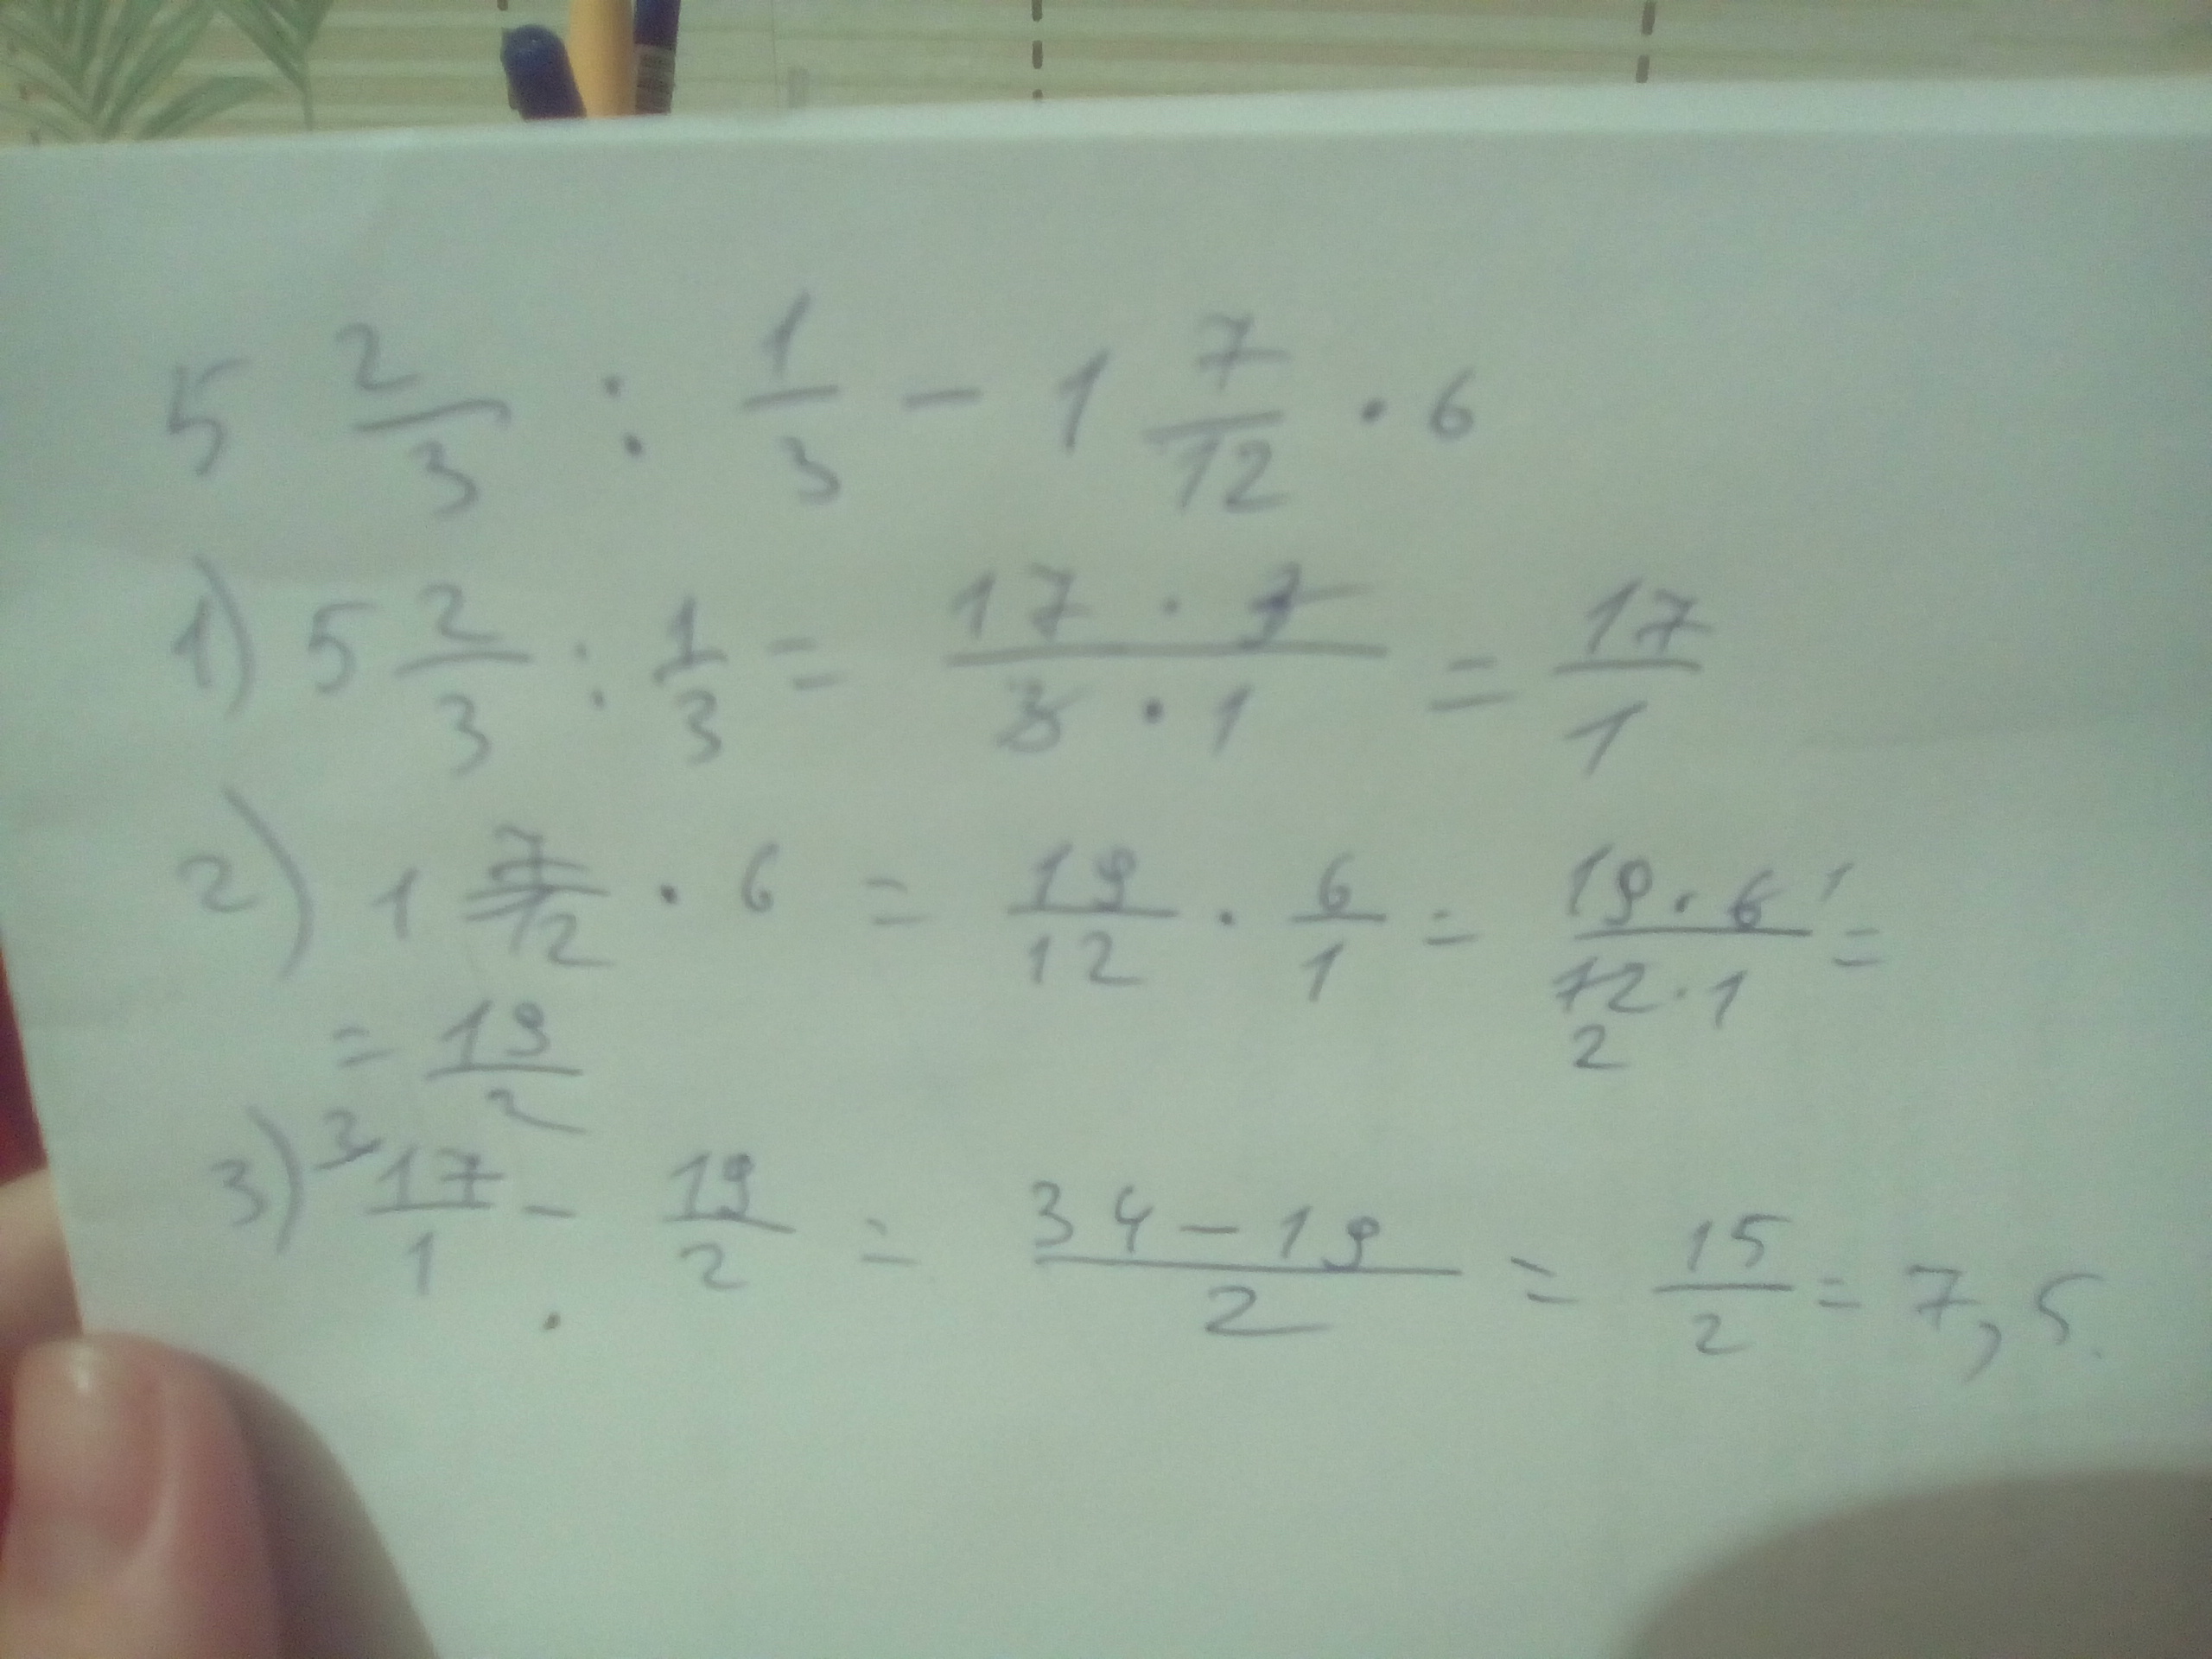 5 2/3 : 1/3 - 1 7/12 · 6
1) 5 2/3 : 1/3 = 17 · 3 / 3 · 1 = 17/1
2) 1 7/12 · 6 = 19/12 · 6/1 = 19 · 6 1 / 12 · 1 2 =
= 19/2
3) 17/1 - 19/2 = 34 - 19 / 2 = 15/2 = 7,5.